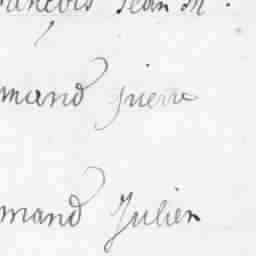 rançois Jean M.
mand pierre
mand Julien